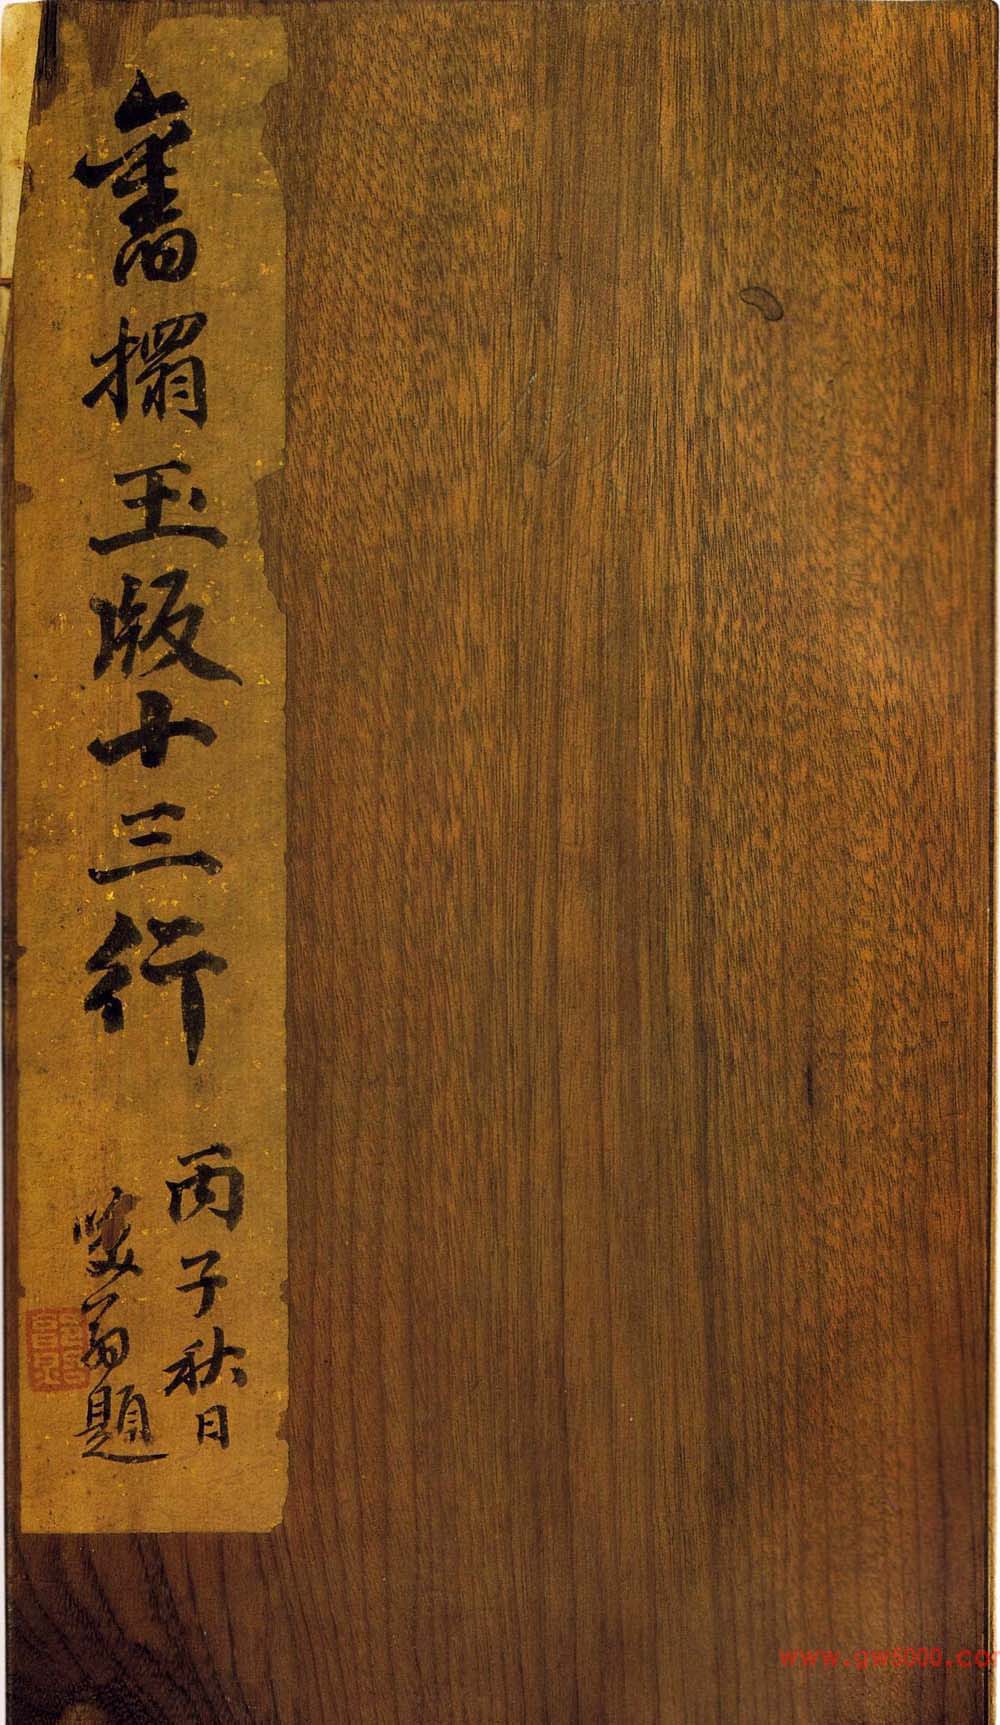 舊搨玉版十三行
丙子秋日
翁題
www.gw8000.com